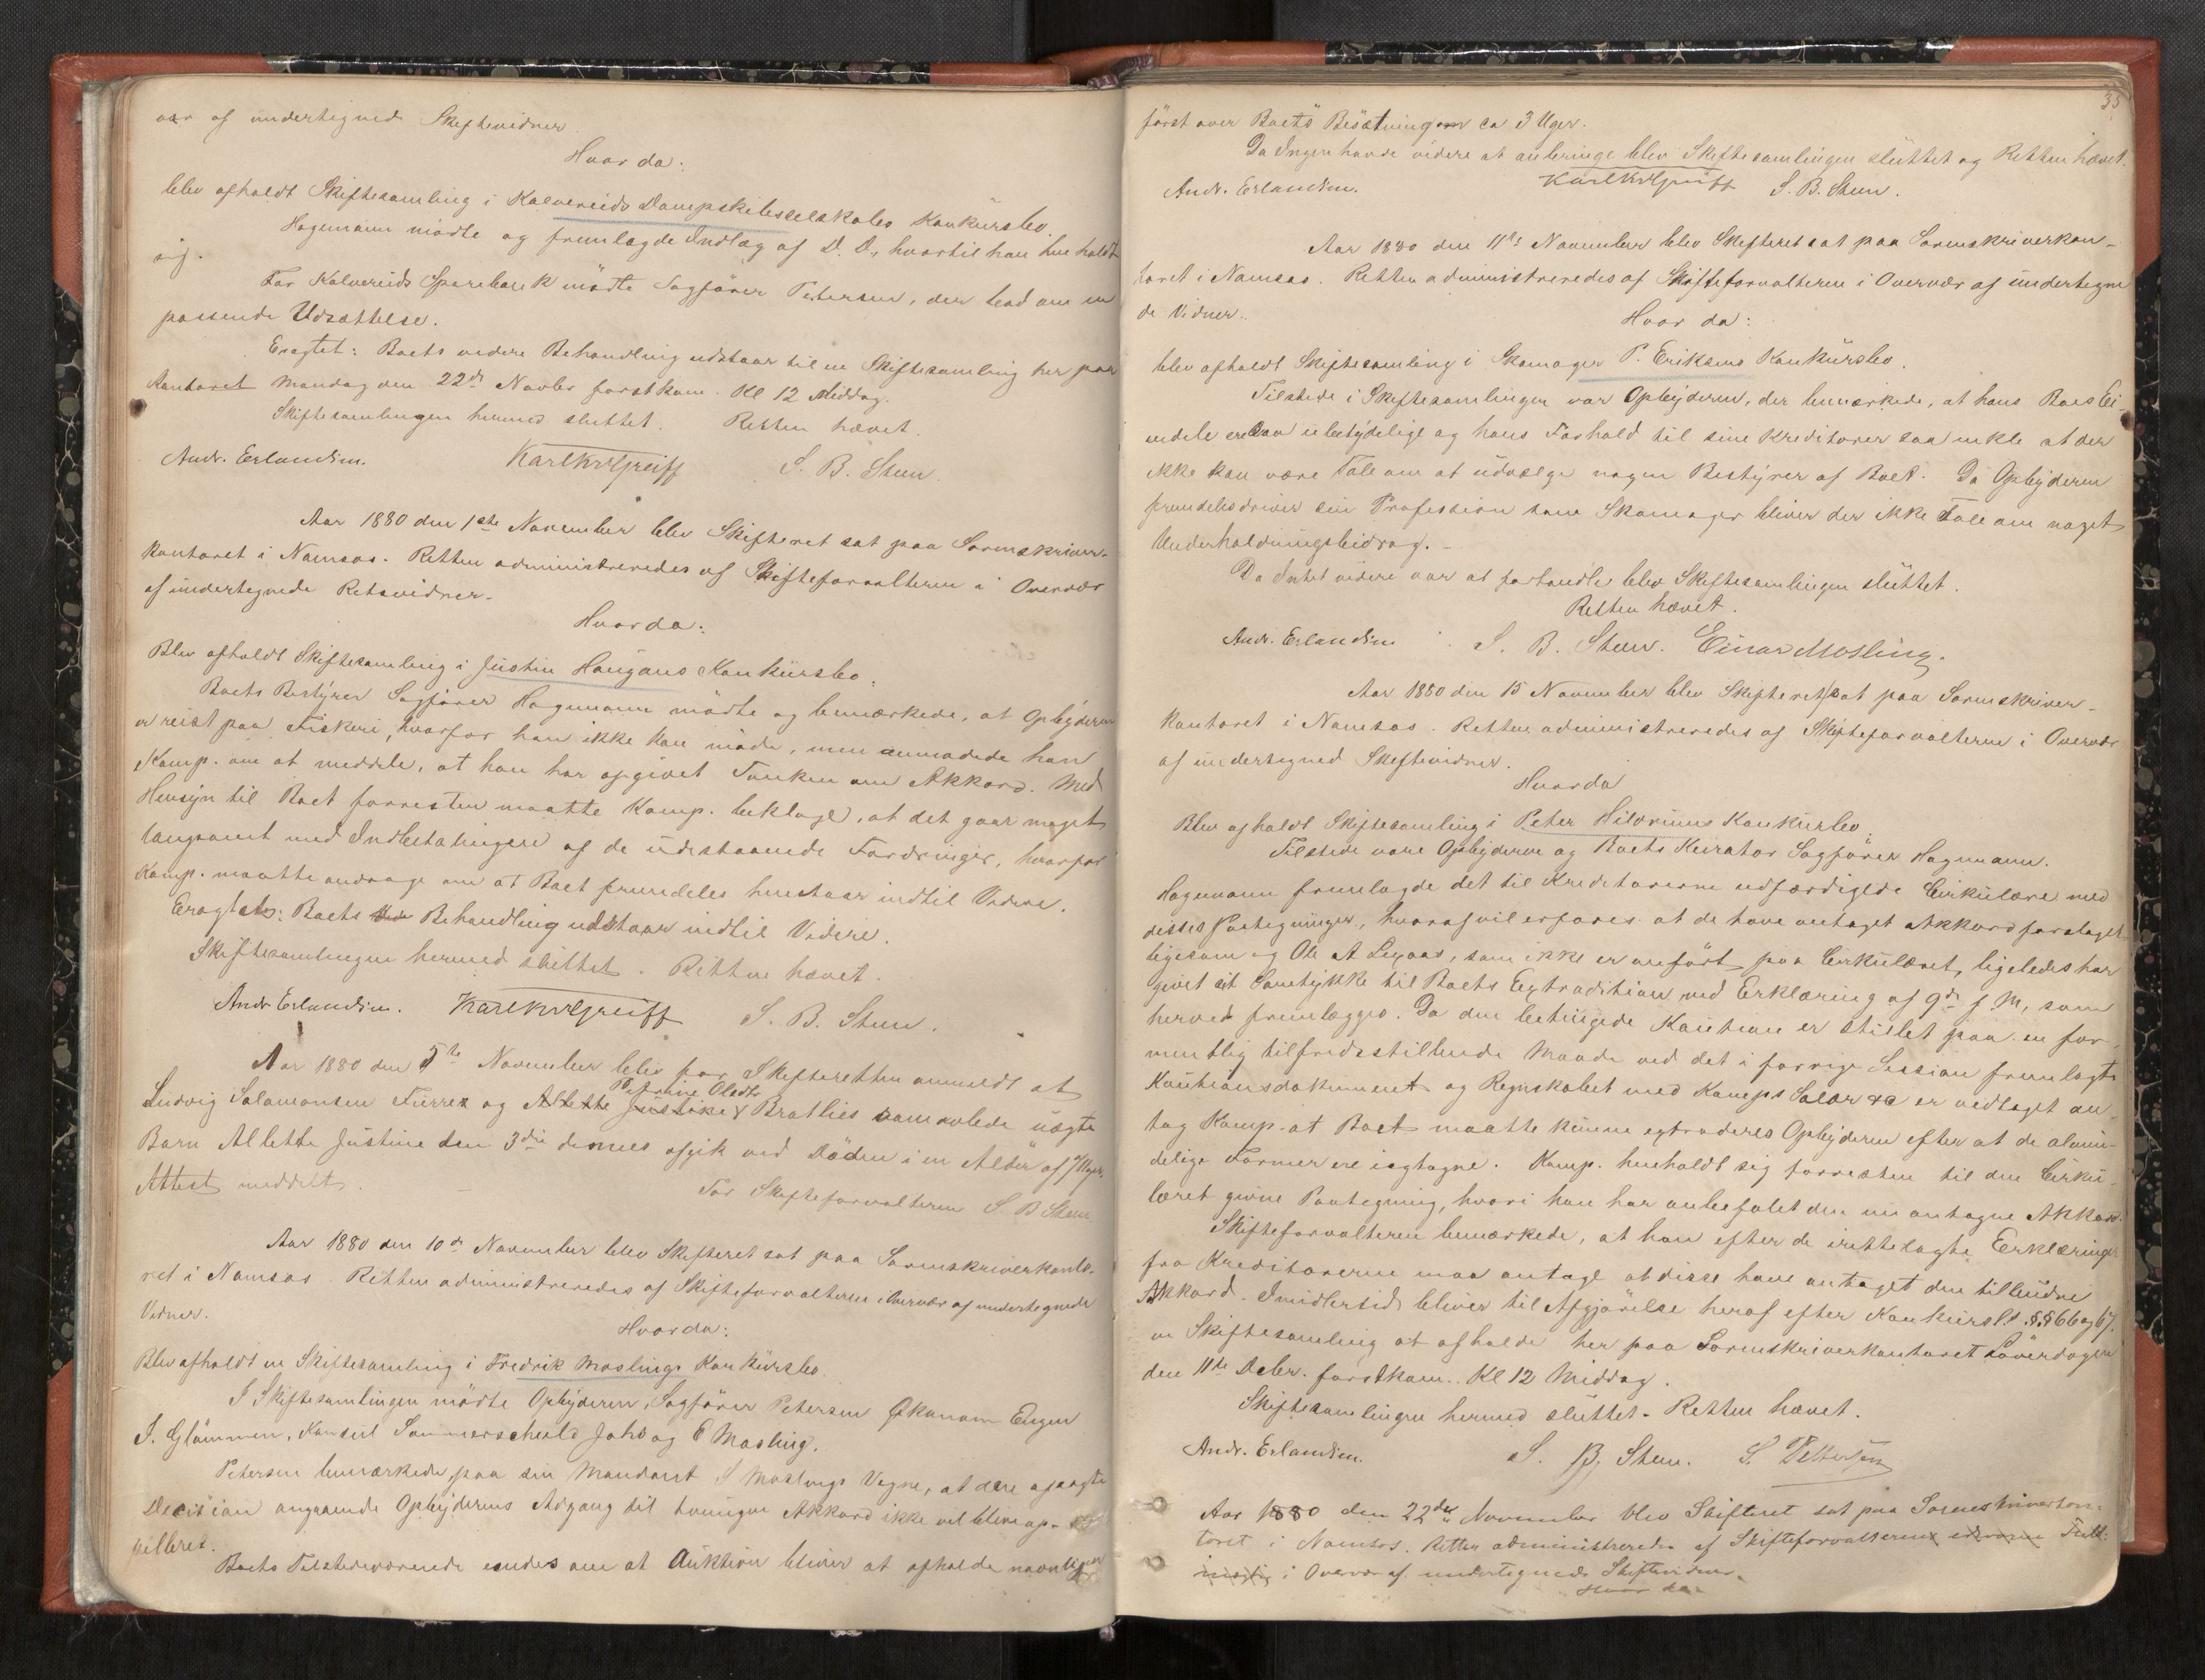 vær af undertegnede Skiftevidner
Hvor da:
blev afholdt Skiftesamling i Kolvereids Dampskibsselskabs Konkursbo.
Hagemann mødte og fremlagde Indlæg af D. D., hvortil han henholdt
sig.
For Kolvereids Sparebank mødte Sagfører Petersen, der bad om en
passende Udsættelse.
Eragtet: Boets videre Behandling udstaar til en Skiftesamling her paa
Kontoret Mandag den 22de Novbr førstkom. Kl 12 Middag.
Skiftesamlingen hermed sluttet. Retten hævet.
Andr. Erlandsen. Karl Greiff S. B. Steen.
Aar 1880 den 1ste November blev Skifteret sat paa Sorenskriver-
kontoret i Namsos. Retten administreredes af Skifteforvalteren i Overvær
af undertegnede Retsvidner.
Hvor da:
Blev afholdt Skiftesamling i Justin Haugans Konkursbo.
Boets Bestyrer Sagfører Hagemann mødte og bemærkede, at Opbyderen
er reist paa Fiskeri, hvorfor han ikke kan møde, men anmodede han
Komp. om at meddele, at han har opgivet Tanken om Akkord. Med
Hensyn til Boet forresten maatte Komp. beklage, at det gaar meget
langsomt med Indbetalingen af de udestaaende Fordringer, hvorfor
Komp. maatte andrage om at Boet fremdeles henstaar indtil Videre.
Eragtet: Boets Behandling udstaar indtil Videre.
Skiftesamlingen hermed sluttet. Retten hævet.
Andr Erlandsen. Karl Greiff S. B. Steen.
Aar 1880 den 5te November blev for Skifteretten anmeldt at
Petrine Olsdtr
Ludvig Salamonsen Furre og Alette Justine Bratlies samavlede uægte
Barn Allette Justine den 3die dennes afgik ved Døden i en Alder af 7 Uger.
Attest meddelt.
For Skifteforvalteren S. B Steen
Aar 1880 den 10de November blev Skifteret sat paa Sorenskriverkonto-
ret i Namsos. Retten administreredes af Skifteforvalteren i Overvær af undertegnede
Vidner.
Hvor da:
Blev afholdt en Skiftesamling i Fredrik Moslings Konkursbo.
I Skiftesamlingen mødte Opbyderen, Sagfører Petersen Økonom Engen
I. Glømmen, Konsul Sommerschield Jahs og E Mosling.
Petersen bemærkede paa sin Mandant S Moslings Vegne, at den afsagte
Decision angaaende Opbyderens Adgang til tvungen Akkord ikke vil blive ap-
pelleret.
Boets Tilstedeværende enedes om at Auktion bliver at afholde navnligen
35
først over Boets Besætning om ca 3 Uger.
Da Ingen havde videre at anbringe blev Skiftesamlingen sluttet og Retten hævet.
Andr. Erlandsen. Karl Greiff S. B. Steen.
Aar 1880 den 11te November blev Skifteret sat paa Sorenskriverkon-
toret i Namsos. Retten administreredes af Skifteforvalteren i Overvær af undertegne
de Vidner.
Hvor da:
blev afholdt Skiftesamling i Skomager P. Eriksens Konkursbo.
Tilstede i Skiftesamlingen var Opbyderen, der bemærkede, at hans Boes Ei-
endele ere saa ubetydelige og hans Forhold til sine Kreditorer saa enkle at der
ikke kan være Tale om at udvælge nogen Bestyrer af Boet. Da Opbyderen
fremdeles driver sin Profession som Skomager bliver der ikke Tale om noget
Underholdningsbidrag.
Da Intet videre var at forhandle blev Skiftesamlingen sluttet.
Retten hævet.
Andr. Erlandsen S. B. Steen. Einar Mosling.
Aar 1880 den 15 November blev Skifteret sat paa Sorenskriver-
kontoret i Namsos. Retten administreredes af Skifteforvalteren i Overvær
af undertegned Skiftevidner.
Hvor da
Blev afholdt Skiftesamling i Peter Hildrums Konkursbo.
Tilstede vare Opbyderen og Boets Kurator Sagfører Hagemann.
Hagemann fremlagde det til Kreditorerne udfærdigede Cirkulære med
disses Paategninger, hvoraf vil erfares at de have antaget Akkordforslaget
ligesom og Ole A Legaas, som ikke er anført paa Cirkulæret, ligeledes har
givet sit Samtykke til Boets Extradition ved Erklæring af 9de f. M, som
herved fremlægges. Da den betingede Kaution er stillet paa en for-
mentlig tilfredsstillende Maade ved det i forrige Session fremlagte
Kautionsdokument og Regnskabet med Komps Salær &c er vedtaget an-
tog Komp. at Boet maatte kunne extraderes Opbyderen efter at de almin-
delige Former ere iagtagne. Komp. henholdt sig forresten til den Cirku-
læret givne Paategning, hvori han har anbefalet den nu antagne Akkord.
Skifteforvalteren bemærkede, at han efter de irettelagte Erklæringer
fra Kreditorerne maa antage at disse have antaget den tilbudne
Akkord. Imidlertid bliver til Afgjørelse heraf efter Konkursl. §§ 66 og 67.
en Skiftesamling at afholde her paa Sorenskriverkontoret Løverdagen
den 11te Debr. førstkom. Kl 12 Middag.
Skiftesamlingen hermed sluttet. Retten hævet.
Andr. Erlandsen. S. B. Steen. S. Pettersen
Aar 1880 den 22de November blev Skifteret sat paa Sorenskriverkon-
toret i Namsos. Retten administreredes af Skifteforvalteren
i Overvær af undertegnede Skiftevidner.
Hvor da